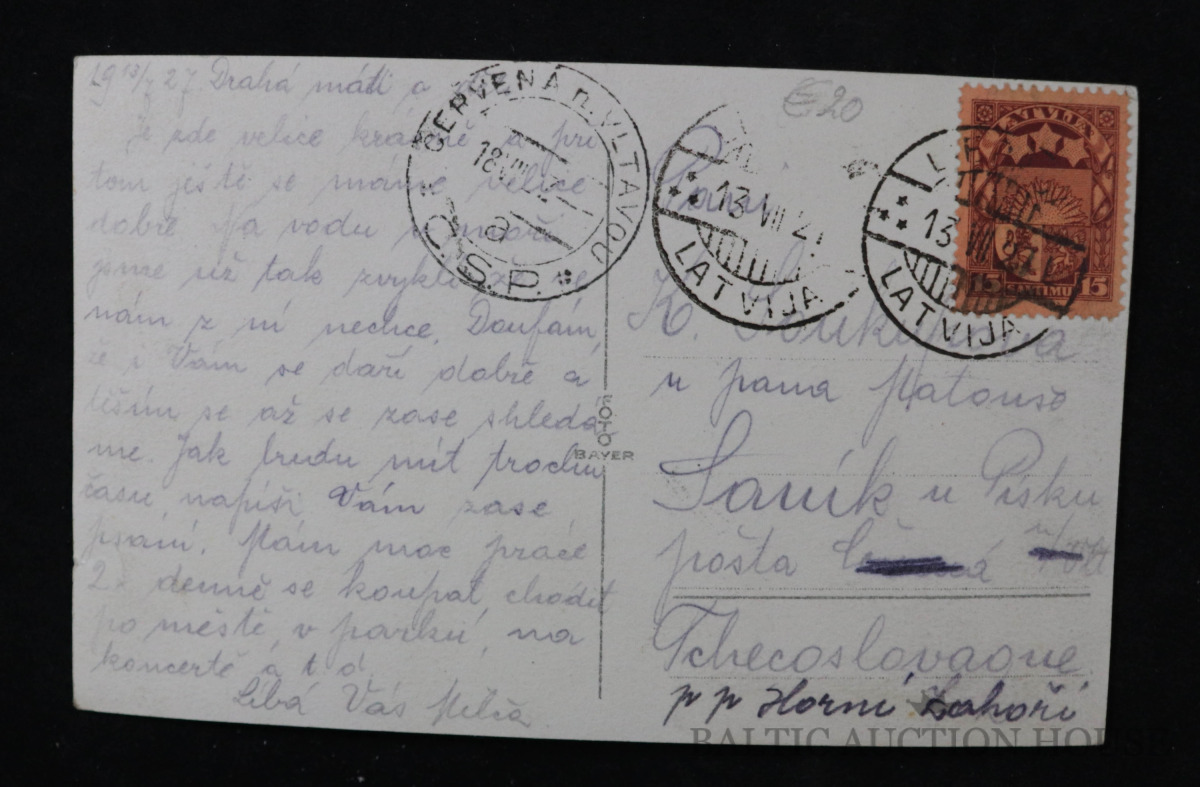 19 13/7 27. Drahá máti a
Je zde velice krásně a při
tom ještě se máme velice
dobře. Na vodu v moři
jsme už tak zvyklí že se
nám z ní nechce. Doufám,
že i Vám se daří dobře a
těším se až se zase shledá
me. Jak budu mít trochu
času, napíši Vám zase
psaní. Mám moc práce
2x denně se koupat, chodit
po městě, v parku, na
koncertě a t. d.
Líbá Vás
ČERVENÁ n. VLTAVOU
18 VII
a
Č.S.P.
€20
13 VII 27
LATVIJA
13 VII
LATVIJA
LATVIJA
15 SANTIMU 15
Paní
K.
u pana Matouše
u Písku
pošta
Tchecoslovaque
p p Horní Záhoří
FOTO
BAYER
BALTIC AUCTION HOUSE